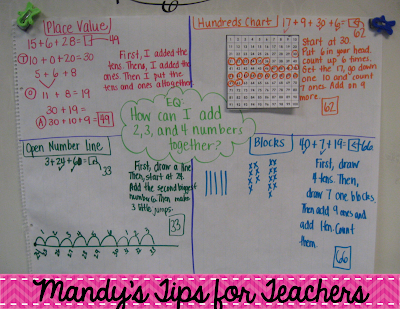 Place Value
15+6+28=
49
10+0+20=30
5+6+8
11+8=19
30+19=
30+10+9=49
First, I added the
tens. Then, I added the
ones. Then I put the
tens and ones altogether.
Hundreds Chart
17+9+30+6=
62
Start at 30.
Put 6 in your head,
count up 6 times.
Get the 17, go down
one 10 and count
7 ones. Add on 9
more.
62
EQ:
How can I add
2, 3, and 4 numbers
together?
Open Number Line
33
First, draw a line
Then, start at 24.
Add the second biggest
number 6. Then make
3 little jumps.
33
Blocks
40+7+19=
66
First, draw
4 tens. Then,
draw 7 one blocks.
Then add 9 ones and
add 10. Count
them.
66
Mandy's Tips for Teachers